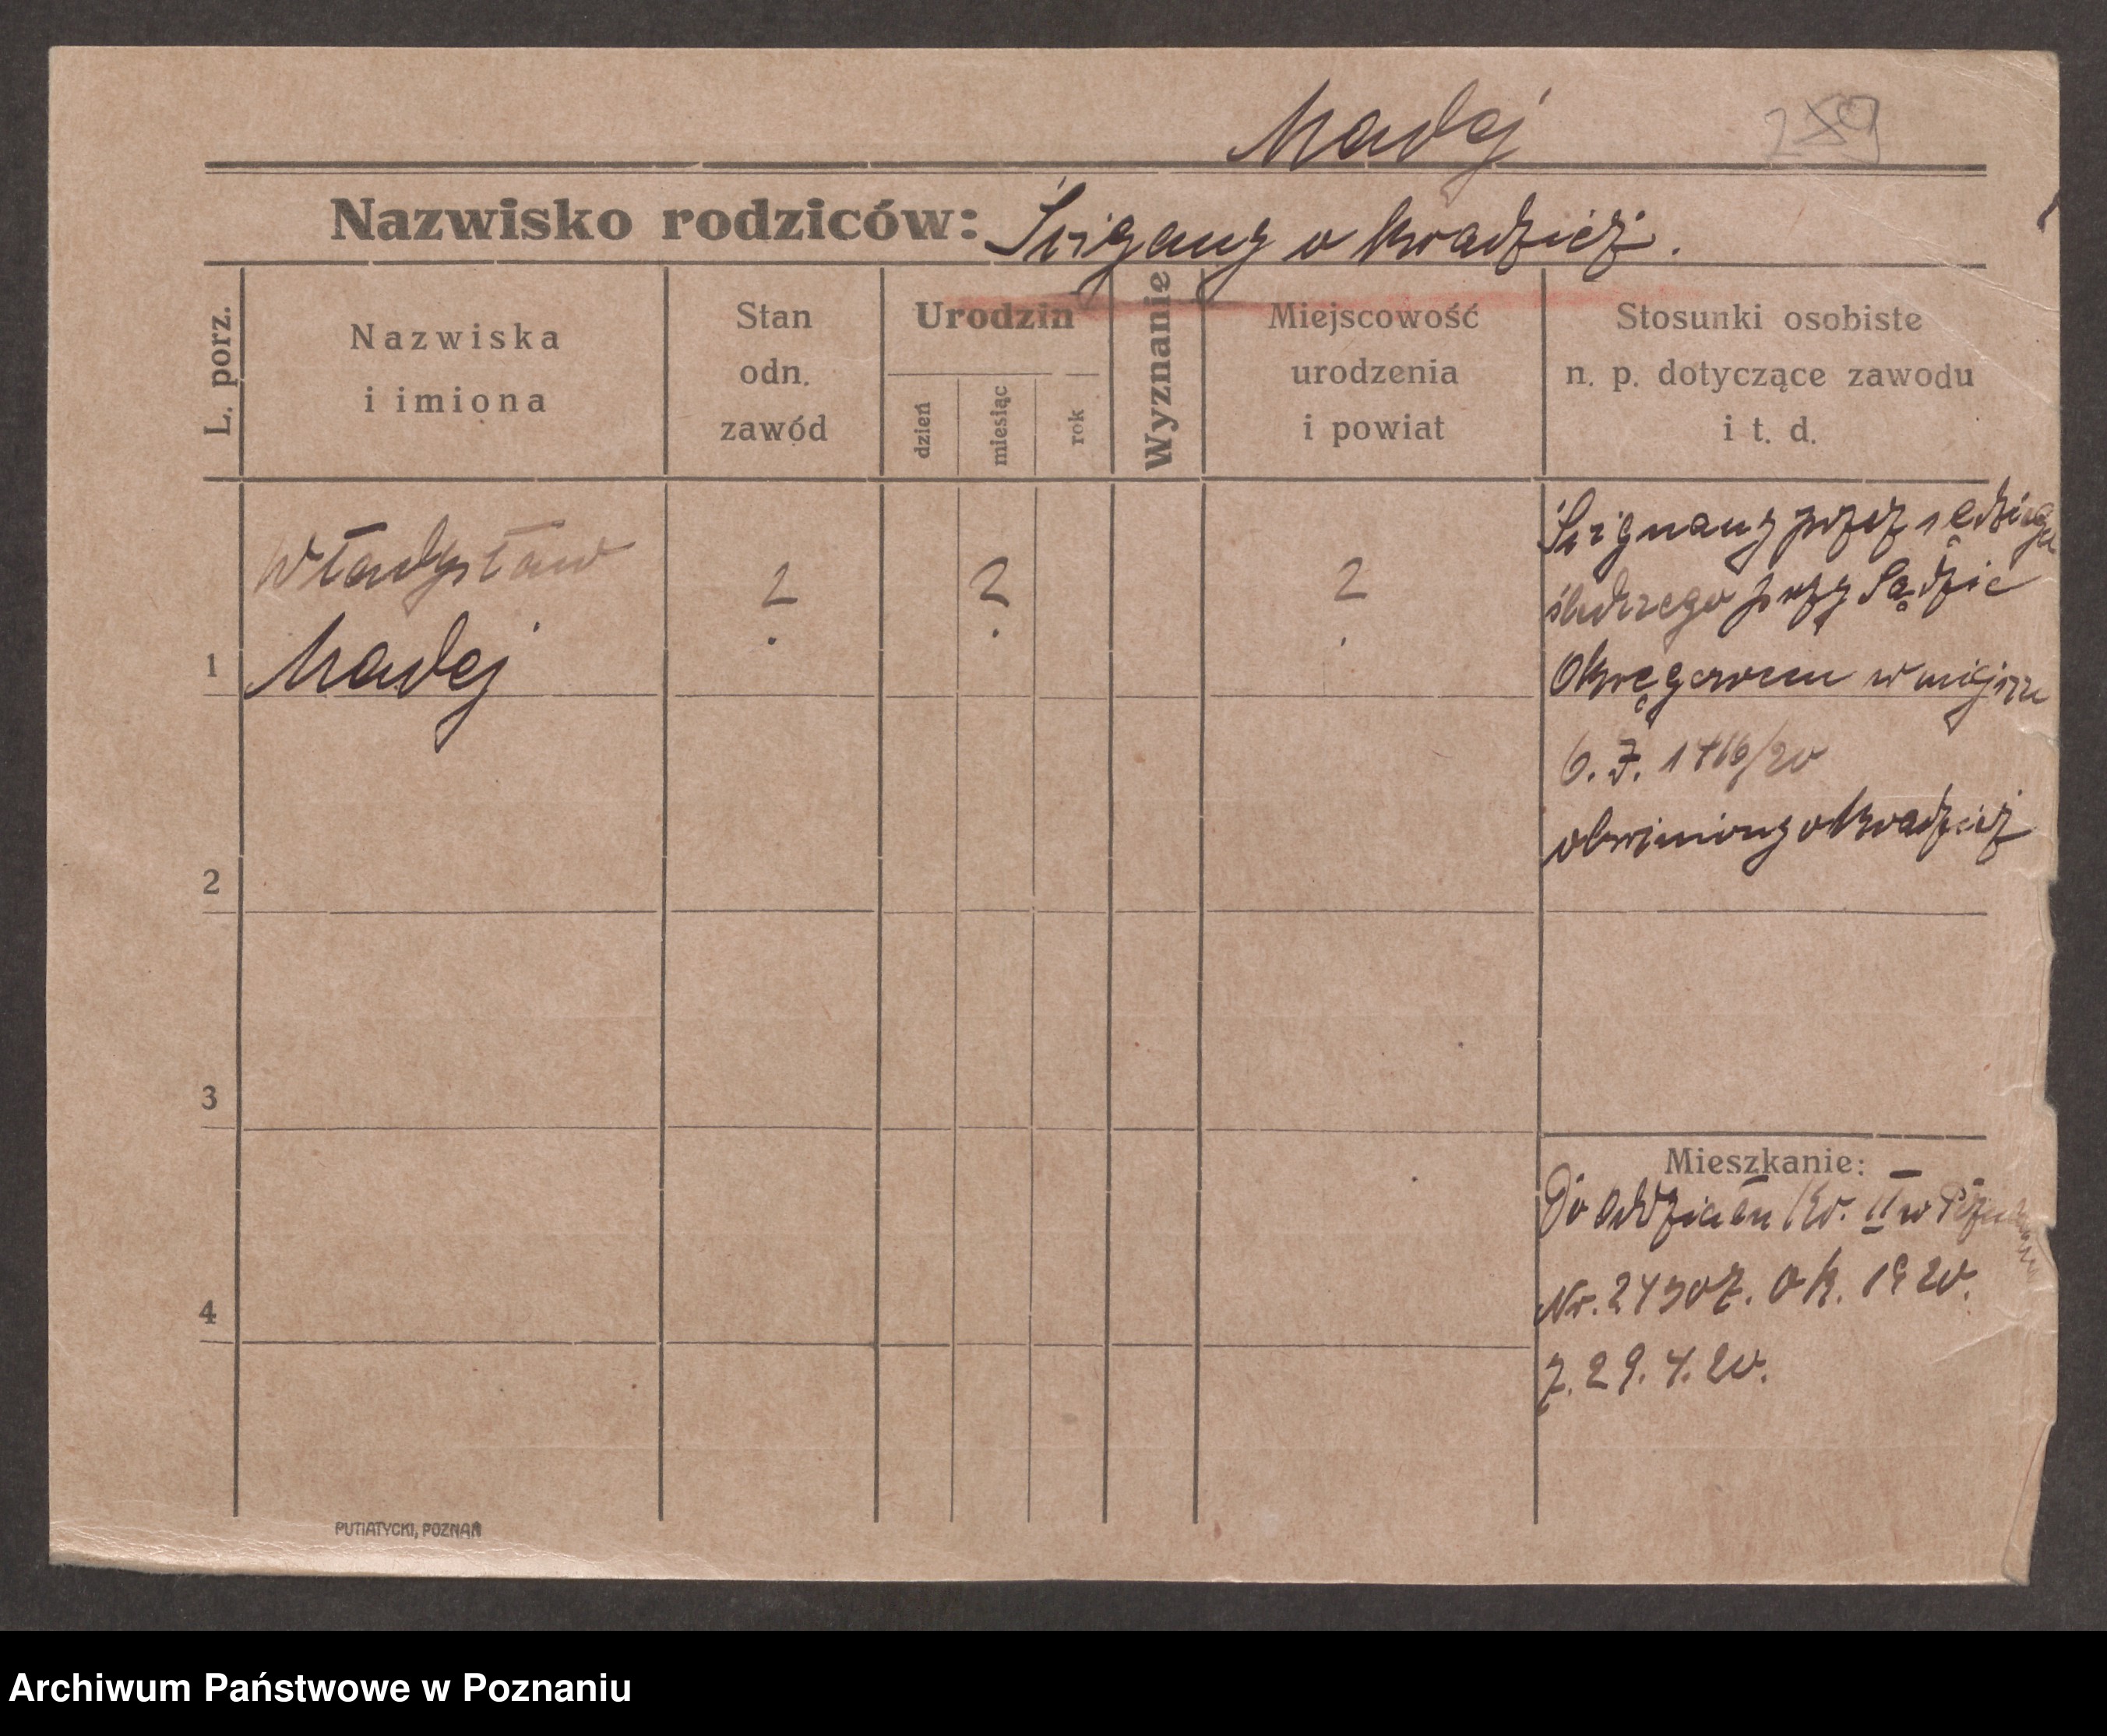 Madej 289
Nazwisko rodziców: Ścigany o kradzież.
L. porz.
Nazwiska
i imiona
Stan
odn.
zawód
Urodzin
dzień
miesiąc
rok
Wyznanie
Miejscowość
urodzenia
i powiat
Stosunki osobiste
n. p. dotyczące zawodu
i t. d.
1
Władysław
Madej
?
?
?
Ścignany przez sędziego
śledczego przy Sądzie
Okręgowem w miejscu
6. J. 1416/20
obwiniony o kradzież
2
3
4
Mieszkanie:
Do Oddziału Kr. II w
Nr. 24307. O K. 1920.
z. 29. 4. 20.
PUTIATYCKI, POZNAŃ
Archiwum Państwowe w Poznaniu